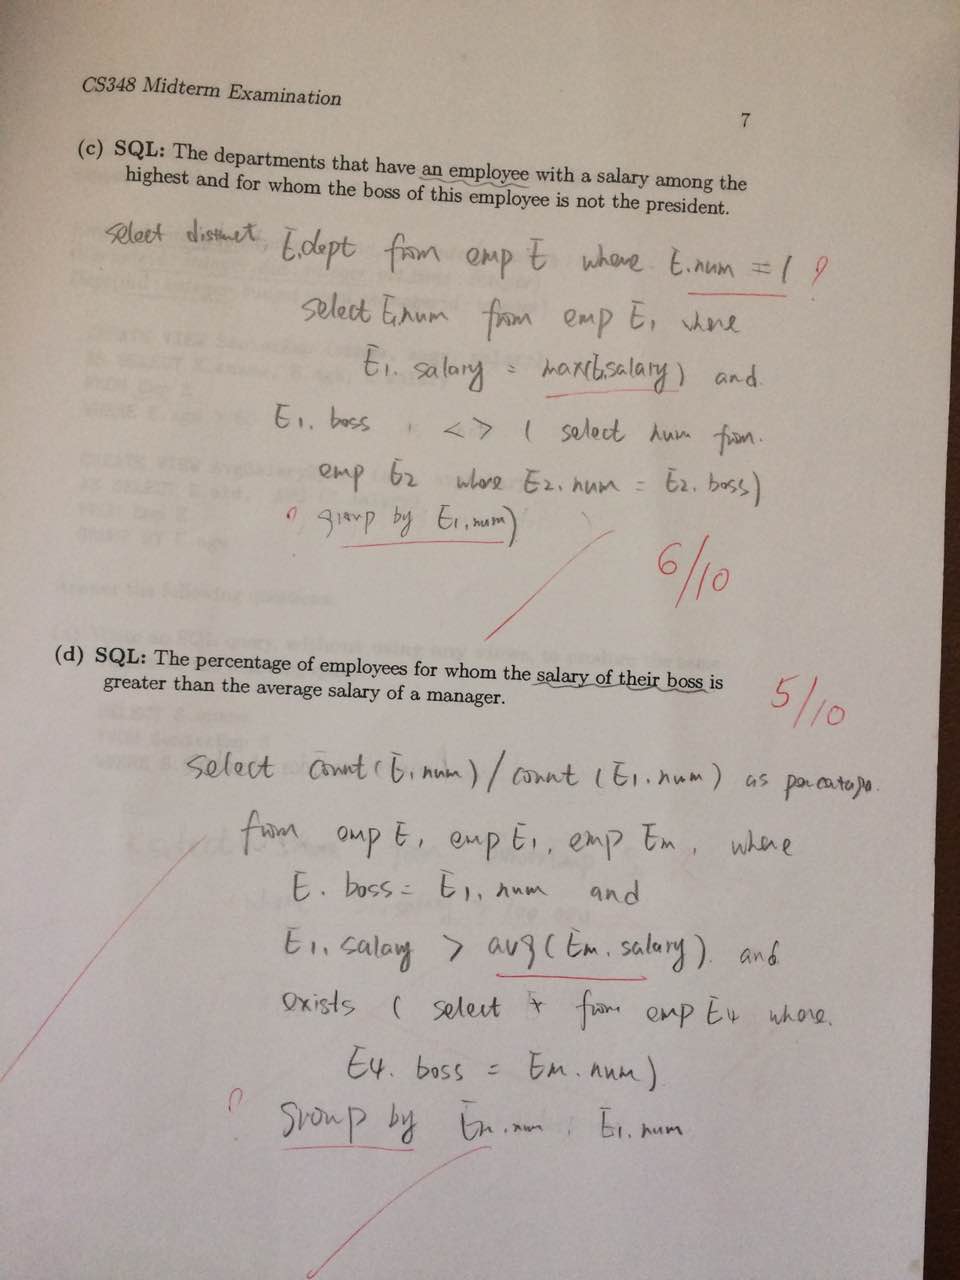 CS348 Midterm Examination
7
(c) SQL: The departments that have an employee with a salary among the
highest and for whom the boss of this employee is not the president.
select distinct E.dept from emp E where E.num = ( ?
select E1.num from emp E1 where
E1. salary = max(E.salary) and
E1. boss <> ( select num from
emp E2 where E2. num = E2. boss)
? group by E1.num)
6/10
(d) SQL: The percentage of employees for whom the salary of their boss is
greater than the average salary of a manager.
5/10
select count (E.num) / count (E1.num) as percentage
from emp E, emp E1, emp Em, where
E. boss = E1. num and
E1. salary > avg (Em. salary) and
exists ( select * from emp E4 where
E4. boss = Em. num)
? group by Em.num, E1. num